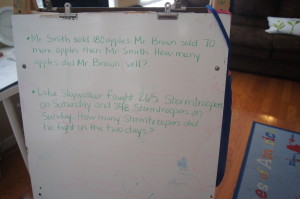 • Mr. Smith sold 180 apples. Mr. Brown sold 70
more apples than Mr. Smith. How many
apples did Mr. Brown sell?
• Luke Skywalker fought 265 Stormtroopers
on Saturday and 248 Stormtroopers on
Sunday. How many Stormtroopers did
he fight in the two days?